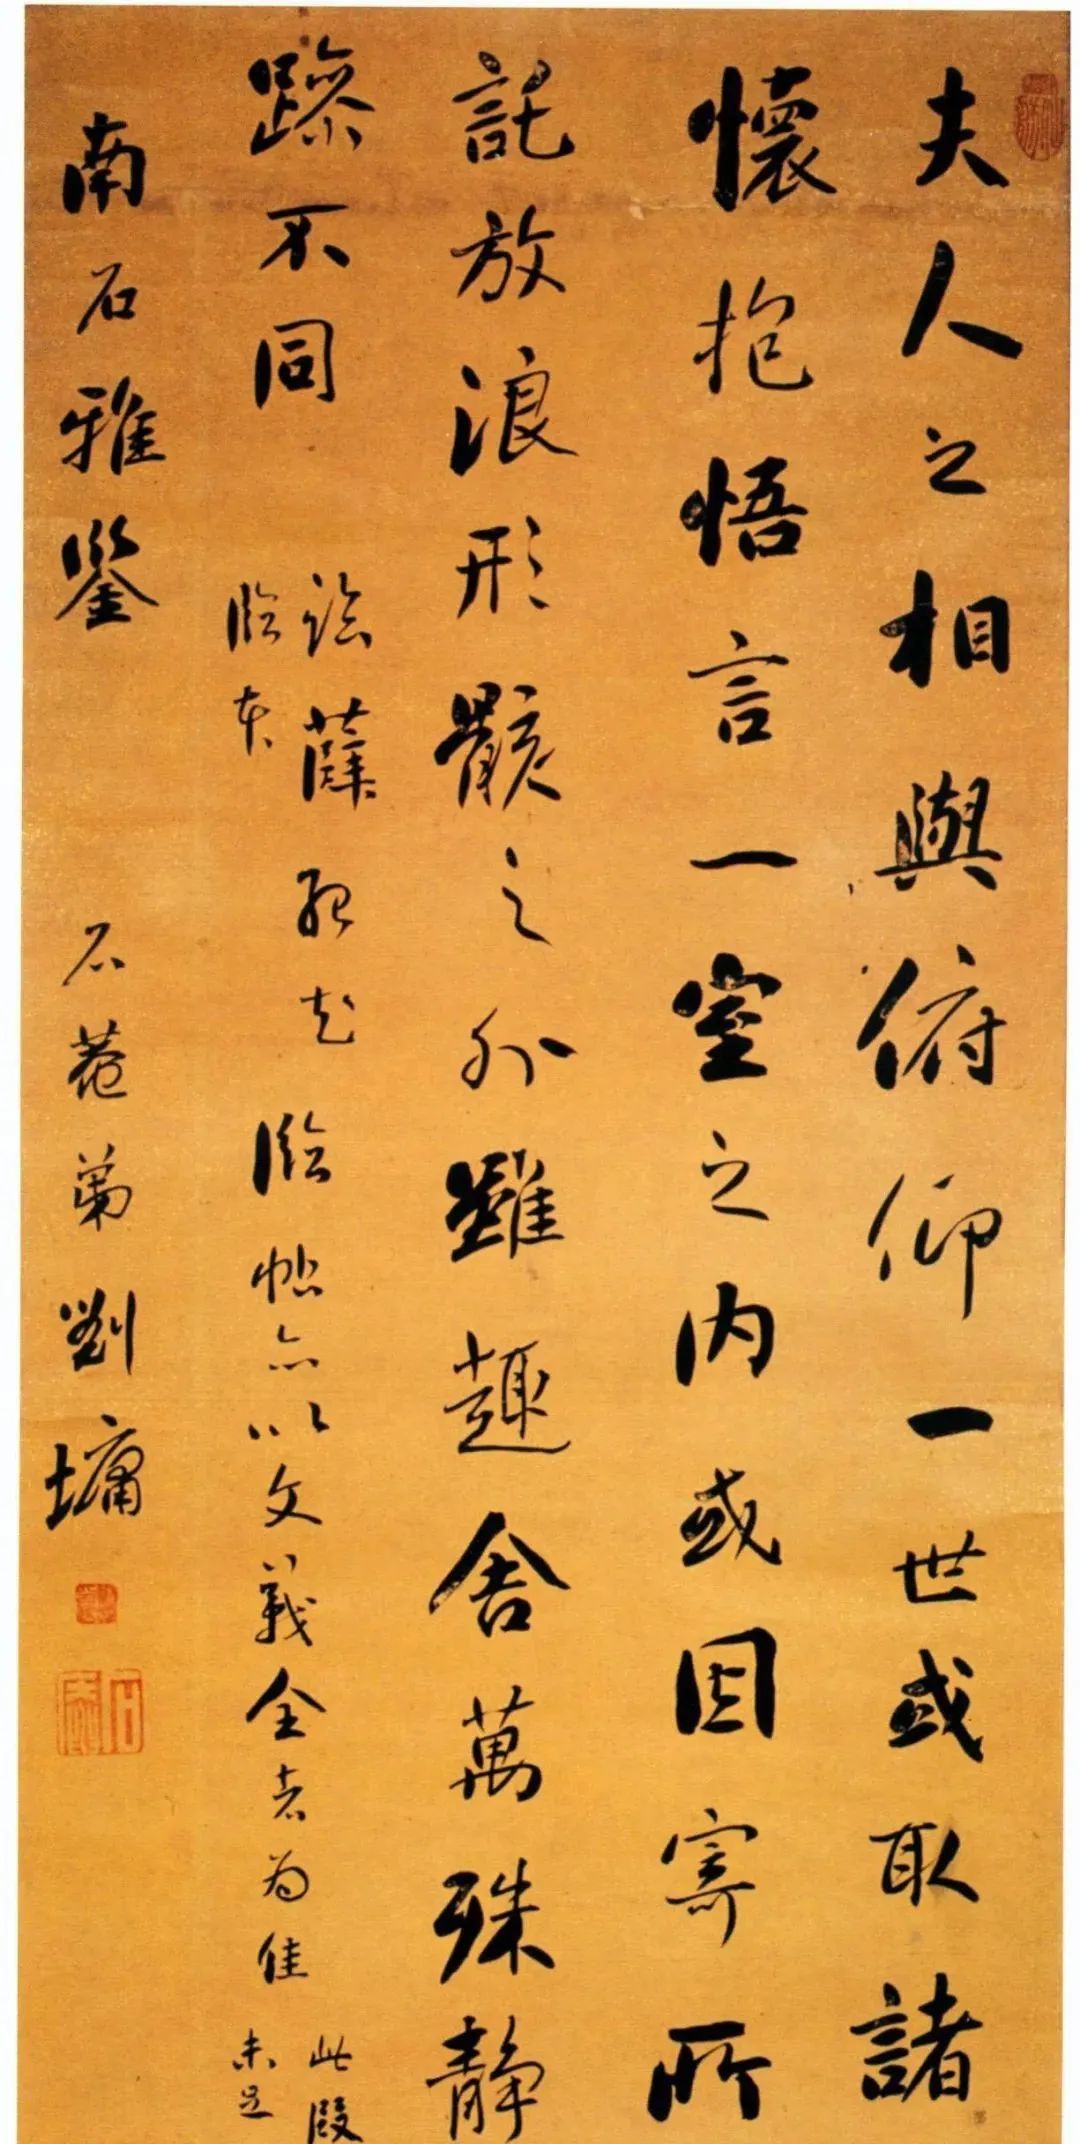 夫人之相與俯仰一世或取諸
懷抱悟言一室之内或因寄所
託放浪形骸之外雖趣舍萬殊静
躁不同
臨本
臨帖亦以文義全者为佳
此段
未足
南石雅鑒 石菴弟劉墉